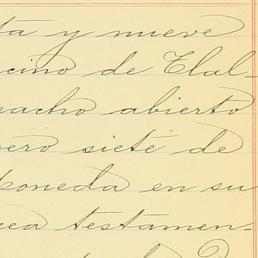 ta y nueve
cino de Tlal-
pacho abierto
ero siete de
poneda en su
cea testamen-